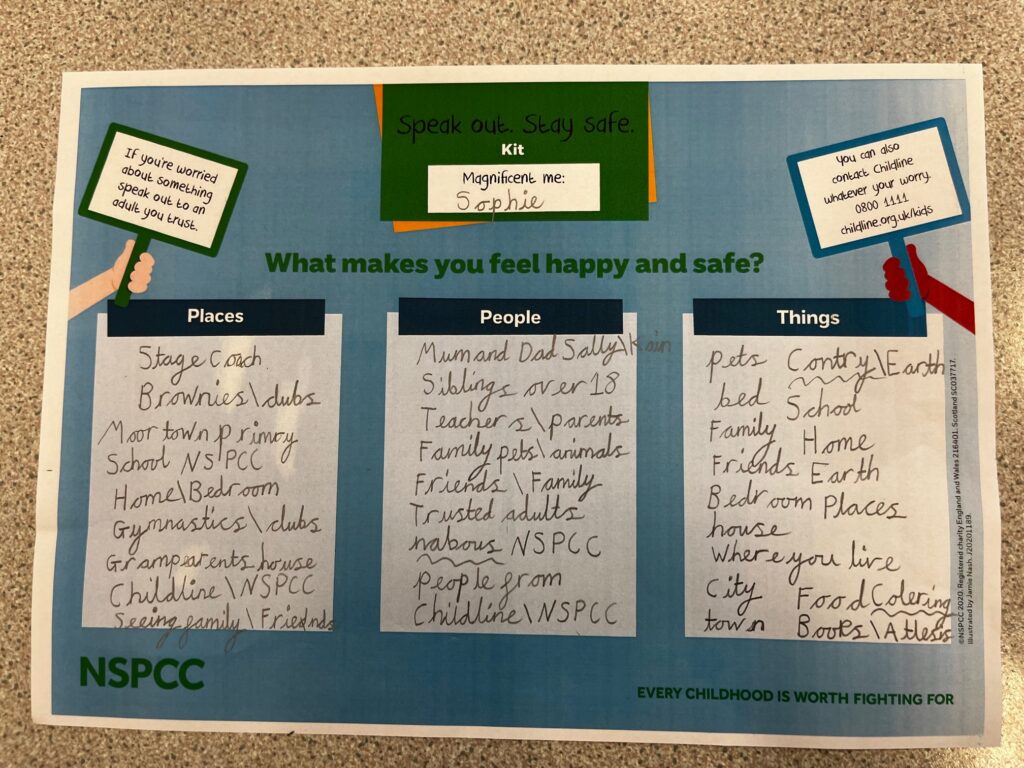 Speak out. Stay safe.
Kit
Magnificent me:
Sophie
If you're worried
about something
speak out to an
adult you trust.
You can also
contact Childline
whatever your worry.
0800 1111
childline.org.uk/kids
What makes you feel happy and safe?
Places
Stage Coach
Brownies\clubs
Moortown primcy
School NSPCC
Home\Bedroom
Gymnastics\clubs
Gramparents house
Childline\NSPCC
Seeing family\Friends
People
Mum and Dad Sally\Kain
Siblings over 18
Teachers\parents
Family pets\animals
Friends\Family
Trusted adults
nabous NSPCC
people from
Childline\NSPCC
Things
pets Contry\Earth
bed School
Family Home
Friends Earth
Bedroom Places
house
where you live
City Food Colering
town Books\Atlesis
©NSPCC 2020. Registered charity England and Wales 216401. Scotland SC037717.
Illustrated by Jamie Nash. J20201189.
NSPCC
EVERY CHILDHOOD IS WORTH FIGHTING FOR